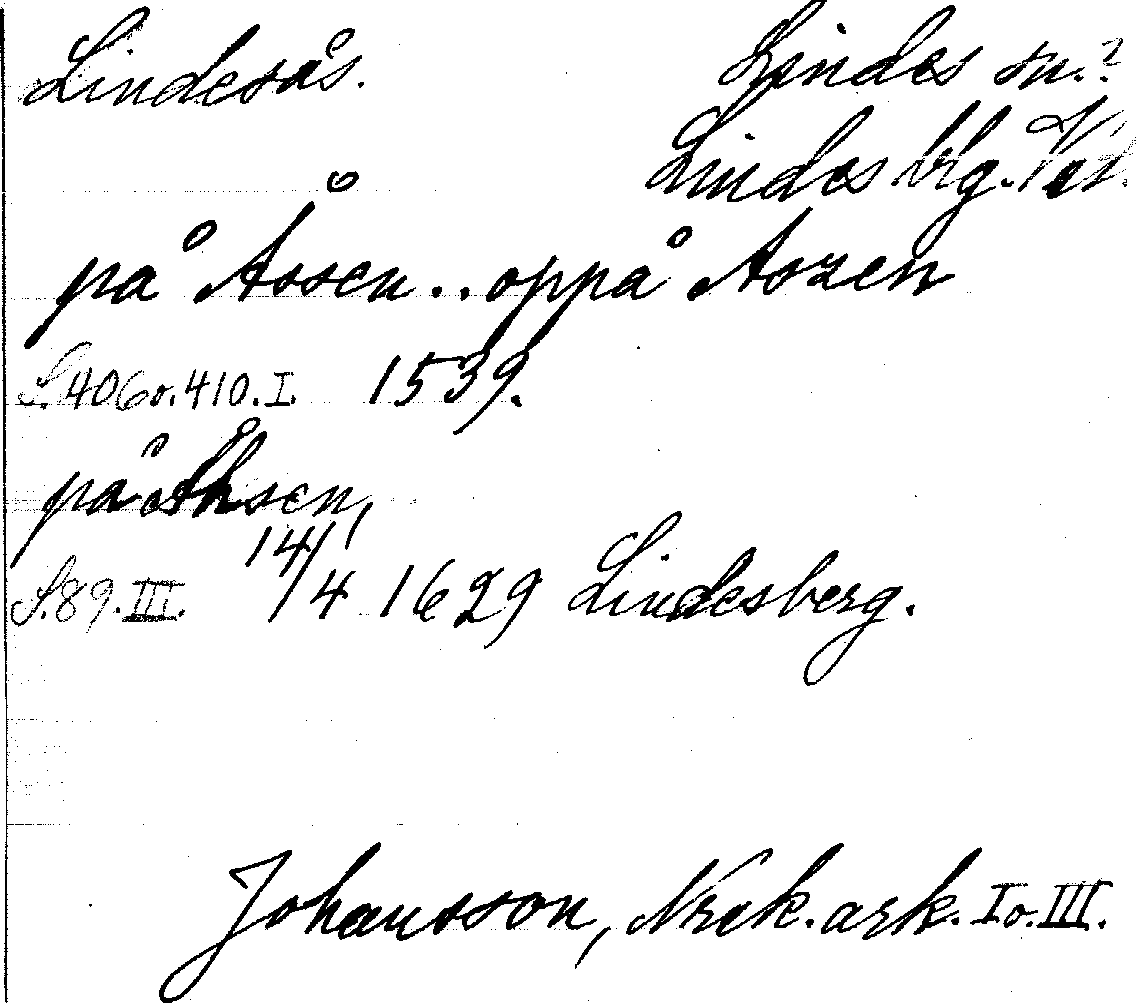 Lindesås. Lindes sn.?
Lindes blg. Vstl.
på Åssen .. oppå Åszen
S. 406 o. 410. I. 1539.
på Åhsen,
S. 89. III. 14/4 1629 Lindesberg.
Johansson, Nrck. ark. I o. III.